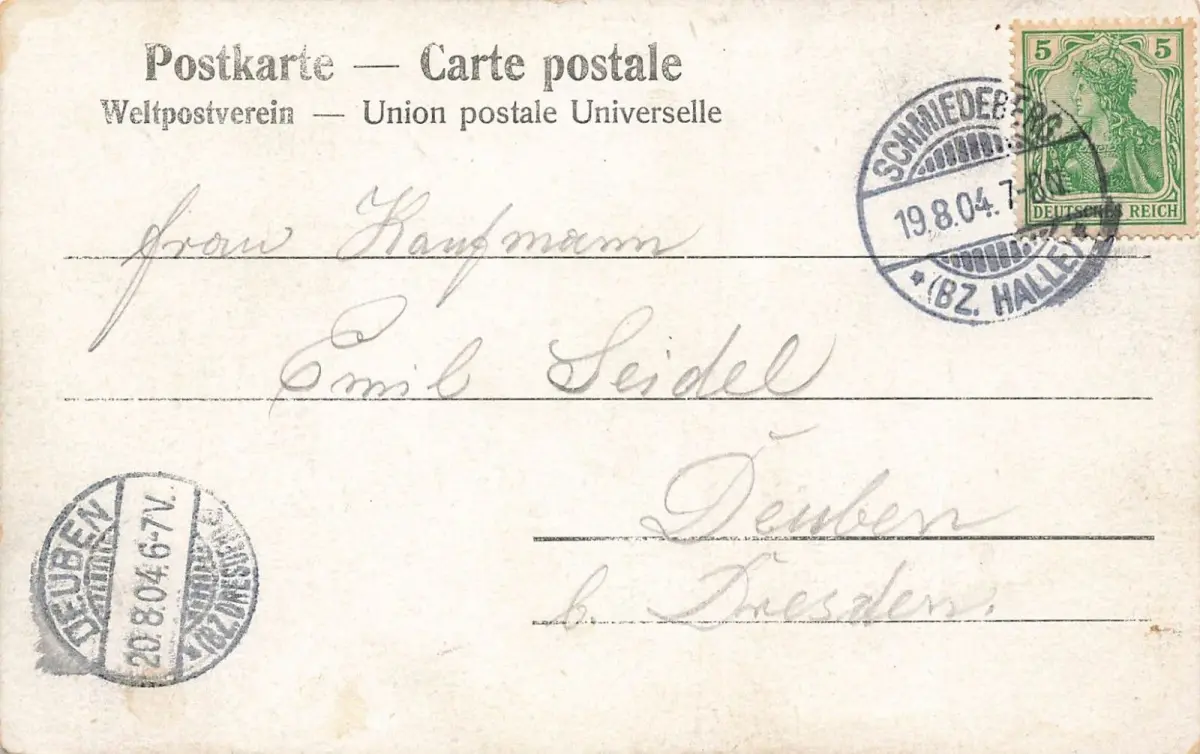 Postkarte — Carte postale
Weltpostverein — Union postale Universelle
5 5
DEUTSCHES REICH
SCHMIEDEBERG
19.8.04. 7-8N
* (BZ. HALLE) *
Frau Kaufmann
Emil Seidel
Deuben
b. Dresden.
DEUBEN
20.8.04. 6-7V.
* (BZ. DRESDEN)